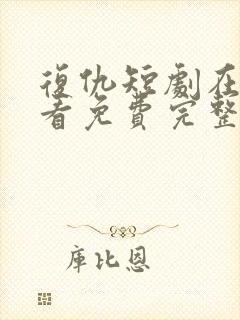 復仇短劇在
看免費完整
庫比恩